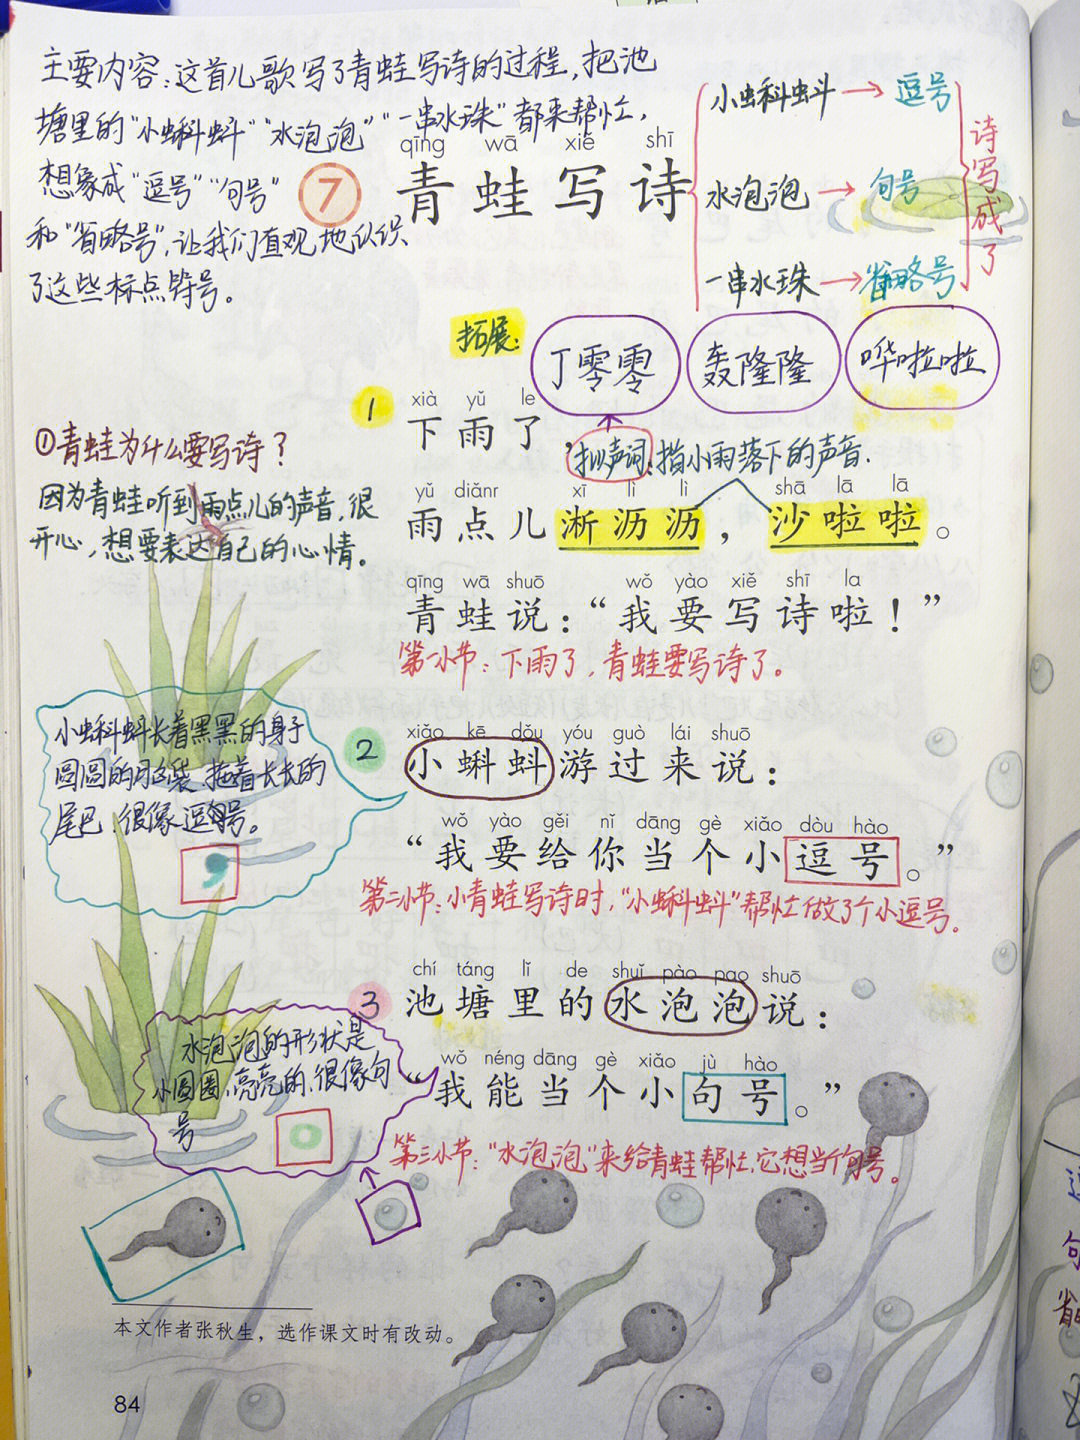 主要内容：这首儿歌写了青蛙写诗的过程，把池
塘里的“小蝌蚪”“水泡泡”“一串水珠”都来帮忙，
想象成“逗号”“句号”
和“省略号”，让我们直观地认识
了这些标点符号。
7
qīng wā xiě shī
青蛙写诗
小蝌蚪→逗号
水泡泡→句号
一串水珠→省略号
诗写成了
拓展：
丁零零
轰隆隆
哗啦啦
1
xià yǔ le
下雨了，
拟声词：指小雨落下的声音.
①青蛙为什么要写诗？
因为青蛙听到雨点儿的声音，很
开心，想要表达自己的心情。
yǔ diǎnr xī lì lì shā lā lā
雨点儿淅沥沥，沙啦啦。
qīng wā shuō wǒ yào xiě shī la
青蛙说：“我要写诗啦！”
第一小节：下雨了，青蛙要写诗了。
小蝌蚪长着黑黑的身子
圆圆的脑袋，拖着长长的
尾巴，很像逗号。
2
xiǎo kē dǒu yóu guò lái shuō
小蝌蚪游过来说：
wǒ yào gěi nǐ dāng gè xiǎo dòu hào
“我要给你当个小逗号。”
第二小节：小青蛙写诗时，“小蝌蚪”帮忙做了个小逗号。
3
chí táng lǐ de shuǐ pào pao shuō
池塘里的水泡泡说：
水泡泡的形状是
小圆圈，亮亮的，很像句
号
wǒ néng dāng gè xiǎo jù hào
“我能当个小句号。”
第三小节：“水泡泡”来给青蛙帮忙，它想当个句号。
本文作者张秋生，选作课文时有改动。
84
句